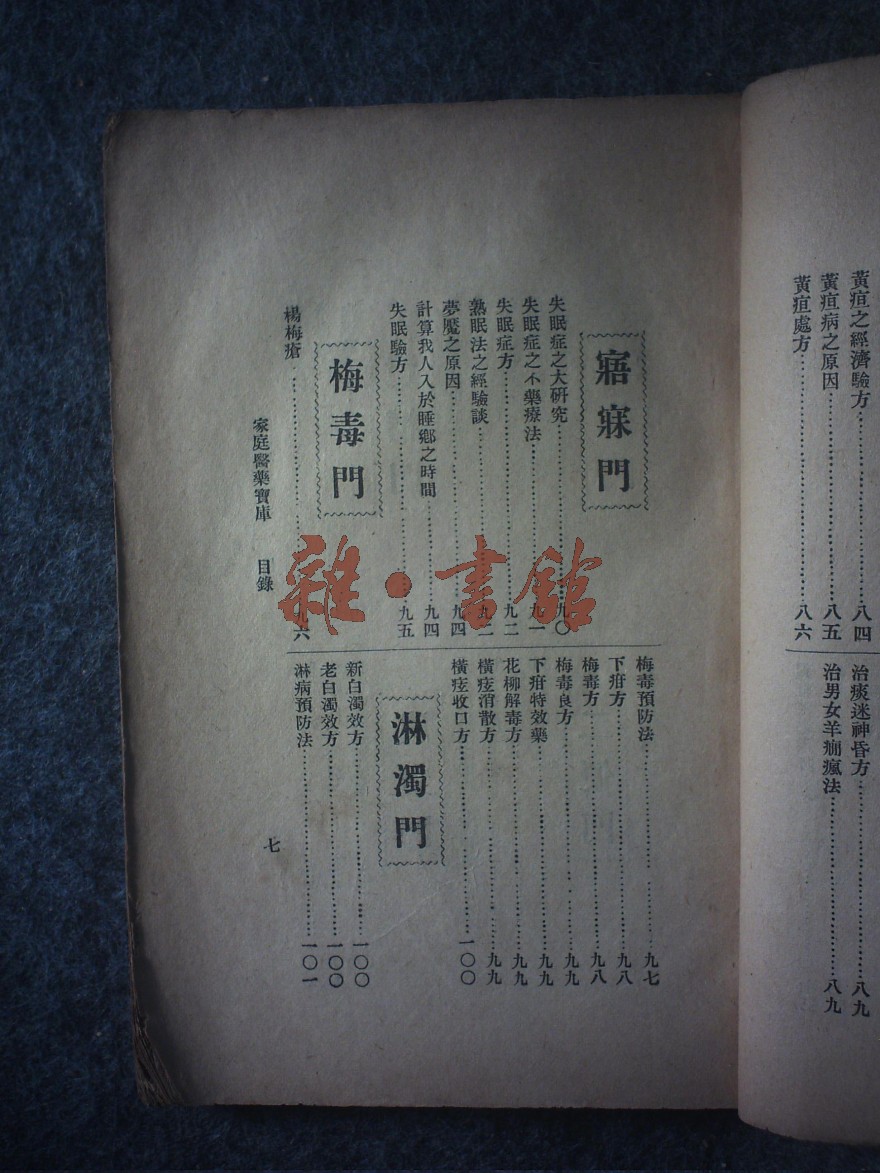 黃疸之經濟驗方………八四
黃疸病之原因………八五
黃疸處方………八六
治痰迷神昏方………八九
治男女羊癎瘋法………八九
寤寐門
失眠症之大研究………九〇
失眠症之不藥療法………九一
失眠症方………九二
熟眠法之經驗談………九二
夢魘之原因………九四
計算我人入於睡鄉之時間………九四
失眠驗方………九五
梅毒門
楊梅瘡………九六
梅毒預防法………九七
下疳方………九八
梅毒方………九八
梅毒良方………九九
下疳特效藥………九九
花柳解毒方………九九
橫痃消散方………九九
橫痃收口方………一〇〇
淋濁門
新白濁效方………一〇〇
老白濁效方………一〇〇
淋病預防法………一〇一
家庭醫藥寶庫 目錄 七
雜·書館